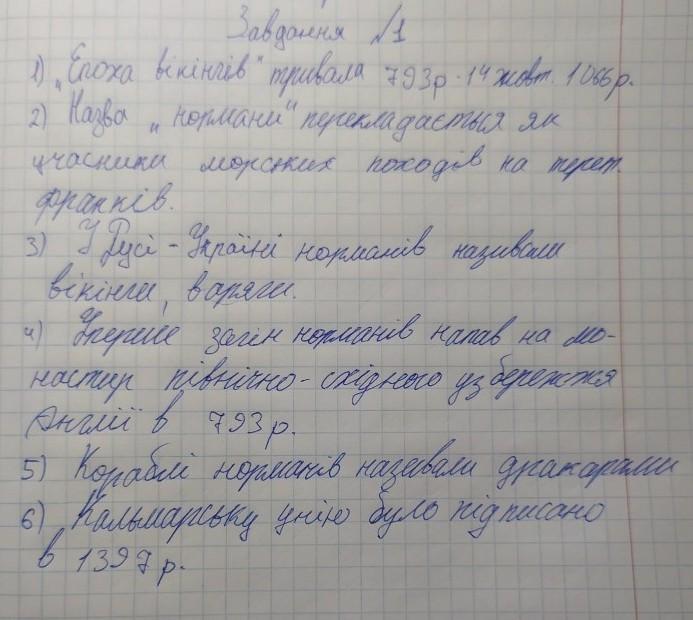 Завдання №1
1) „Епоха вікінгів" тривала 793р - 14 жовт. 1066р.
2) Назва „нормани" перекладається як
учасники морських походів на терит.
франків.
3) У Русі - Україні норманів називали
вікінги, варяги.
4) Уперше загін норманів напав на мо-
настир північно-східного узбережжя
Англії в 793р.
5) Кораблі норманів називали дракарами
6) Кальмарську унію було підписано
в 1397р.